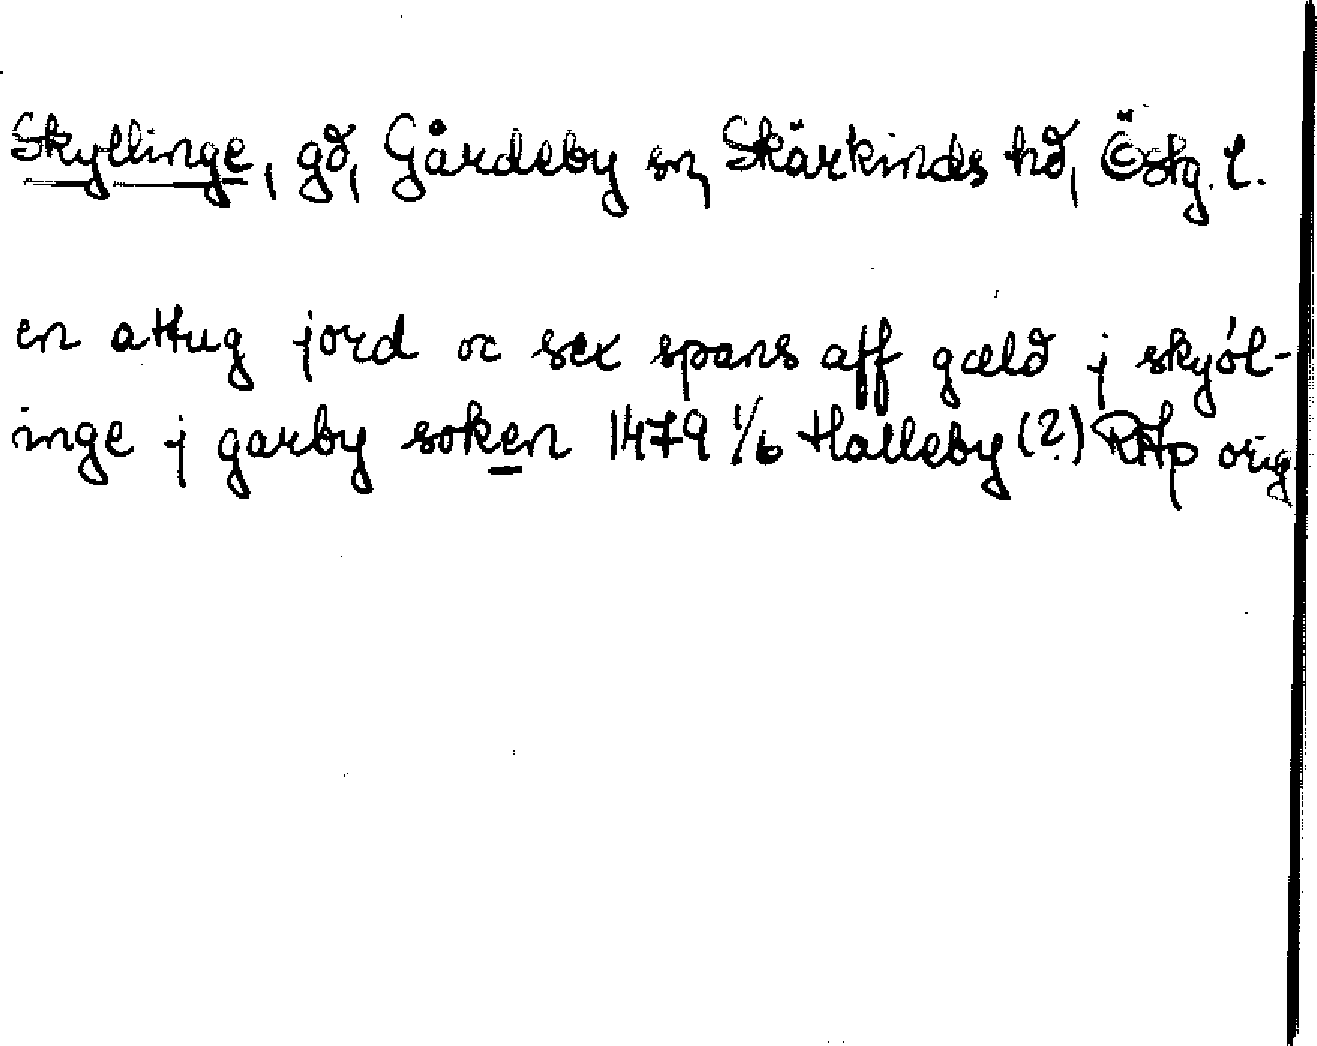 Skyllinge, gd, Gårdeby sn, Skärkinds hd, Östg. l.
en attug jord oc sex spans aff gæld j skyól-
inge j garby soken 1479 1/6 Halleby (?) RAp orig